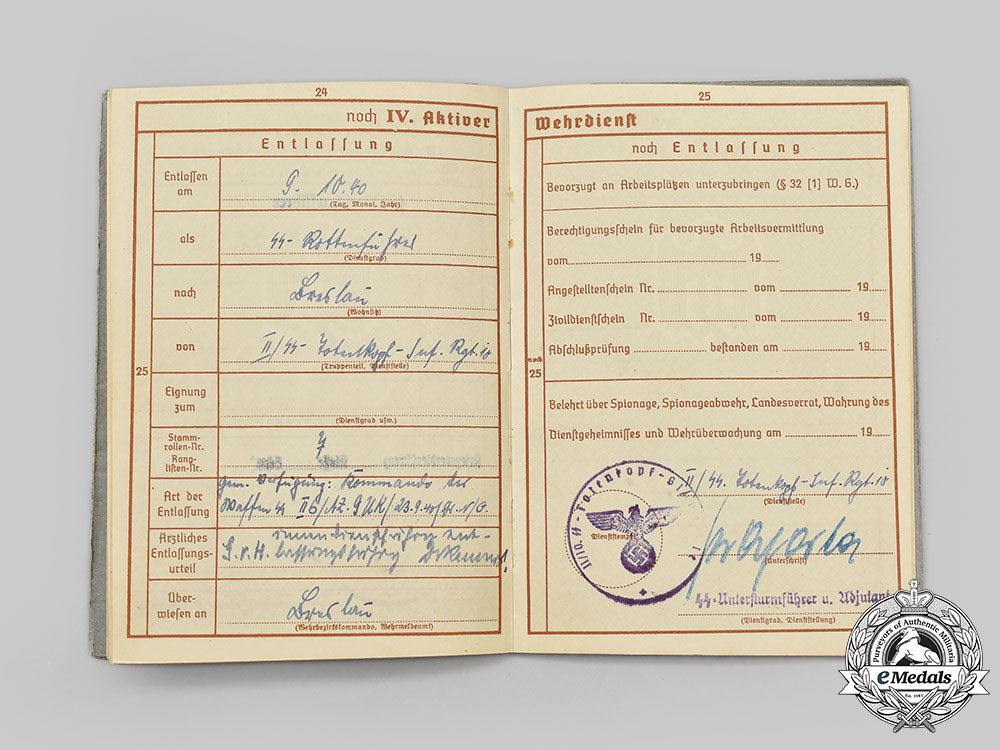 24
noch IV. Aktiver
Entlassung
Entlassen am
9. 10. 40
(Tag, Monat, Jahr)
als
SS-Rottenführer
(Dienstgrad)
nach
Breslau
(Wohnsitz)
von
II/SS-Totenkopf-Inf. Rgt. 10
(Truppenteil, Dienststelle)
25
Eignung zum
(Dienstgrad usw.)
Stamm-
rollen-Nr.
Rang-
listen-Nr.
7
Art der
Entlassung
gem. Verfügung: Kommando der
Waffen SS
Ärztliches
Entlassungs-
urteil
Über-
wiesen an
Breslau
(Wehrbezirkskommando, Wehrmeldeamt)
25
Wehrdienst
noch Entlassung
Bevorzugt an Arbeitsplätzen unterzubringen (§ 32 [1] W. G.)
Berechtigungsschein für bevorzugte Arbeitsvermittlung
vom 19
Angestelltenschein Nr. vom 19
Zivildienstschein Nr. vom 19
Abschlußprüfung bestanden am 19
noch
25
Belehrt über Spionage, Spionageabwehr, Landesverrat, Wahrung des
Dienstgeheimnisses und Wehrüberwachung am 19
II/SS. Totenkopf-Inf. Rgt. 10
(Dienststelle)
Dienststempel
(Unterschrift)
SS-Untersturmführer u. Adjutant
(Dienstgrad, Dienststellung)
Purveyors of Authentic Militaria
eMedals